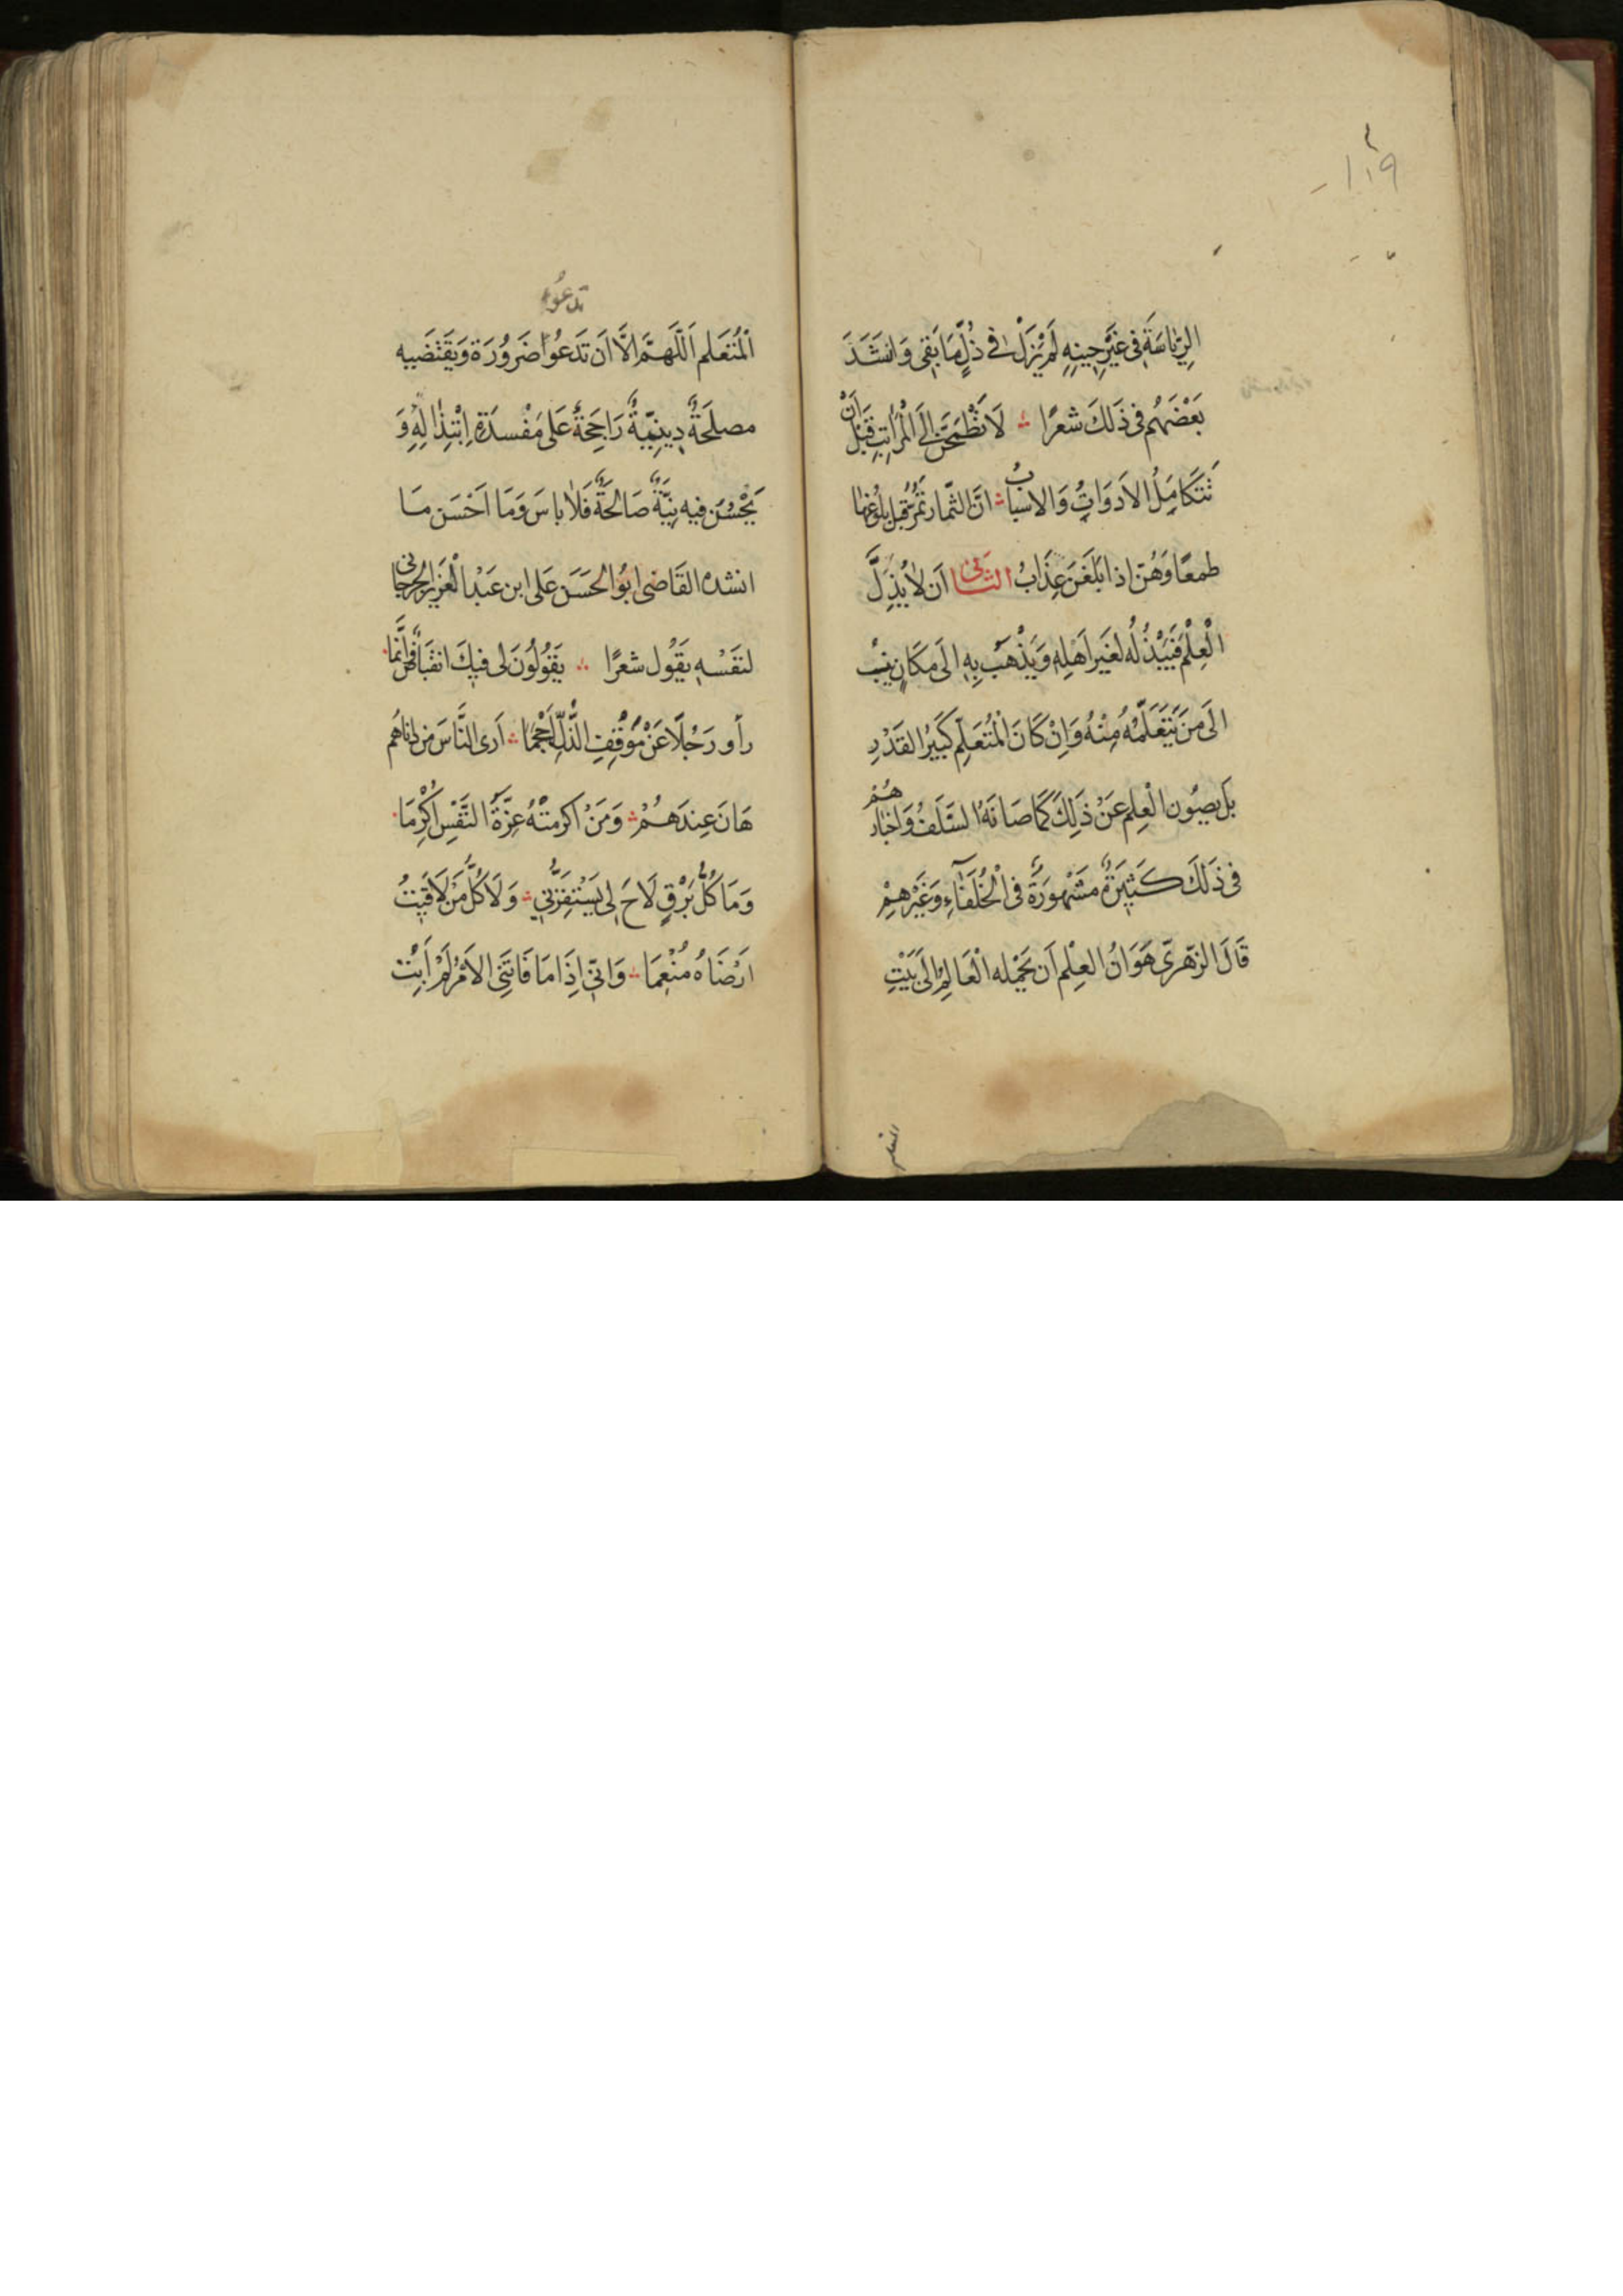 ١٠٩
الرِّيَاسَةَ فِي غَيْرِ حِينِهِ لَمْ يَزَلْ فِي ذُلٍّ مَا بَقِيَ وَانشَدَ
بَعْضَهُم فى ذَلكَ شعرًا لَا تَطْمَحَنَّ اِلَى الْمَرَاتِبِ قَبْلَ اَنْ
تَتَكَامِلُ الاَدَوَاتِ وَالاسبابُ انَّ الثّمار تَمُرُّ قبل بلُوغها
طمعًا وَهُنّ اذا بَلَغَنَ عِذَابُ الثانى اَن لَا يُذِلَّ
الْعِلْمَ فَيَبْذُلُه لغَير اَهْلِهِ وَيَذْهَب بِهِ الَى مَكَانٍ يُنْسَبُ
الَى مَنَ يَتَعَلَّمُهُ مِنْهُ وَاِنْ كَانَ الْمُتَعَلِّم كَبيَرُ القَدْرِ
بَل يصِيُون الْعِلم عَنْ ذَلِكَ كَمَا صَانَهُ السَّلَفُ وَاخبارهُمْ
فى ذَلكَ كَثيرَةٌ مَشْهوُرَةٌ فى الْخُلَفَآءِ وَغَيْرهِمْ
قَالَ الزّهرىّ هَوَانُ العِلْم اَن يَحْمِله الْعَالِمُ اِلىَ بَيْتِ
المتعلم
تدعُو
اَلْمُتَعَلم اَللَّهمّ الَّا اَن تَدعُوا ضَرُورَة وَيَقْتَضيه
مصلَحَةٌ دِينِيّةٌ رَاجِحَةٌ عَلى مَفْسدَةِ اِبْتِذَالِهِ وَ
يَحْسُنَ فيه نِيَّةٌ صَالحَةٌ فَلَا باسَ وَمَا اَحْسَن مَا
انشده القَاضى ابُو الحَسَن عَلى ابن عَبْد الْعَزيز الجرجانى
لنَفْسْهِ يَقُول شعرًا يَقُولُونَ لى فيكَ انقبَاضٌ وَاِنَّما
رأو رَجْلًا عَنْ مَوْقِفِ الذُّلِّ اَحْجَمَا اَرى النَّاسَ مَن دَاناهُم
هَانَ عِندَهُمْ وَمَنْ اكرمتْهُ عِزَّةُ النَّفْسِ اُكْرِمَا
وَمَا كُلُّ بَرْقٍ لَاحَ لى يَسْتَفِزُّنِي وَلَا كُلُّ مَنْ لَاقَيْتُ
ارْضَاهُ مُنْعِمَا وَانّى اِذَا مَا فَاتَنِى الاَمْرُ لَمْ اَبِتْ